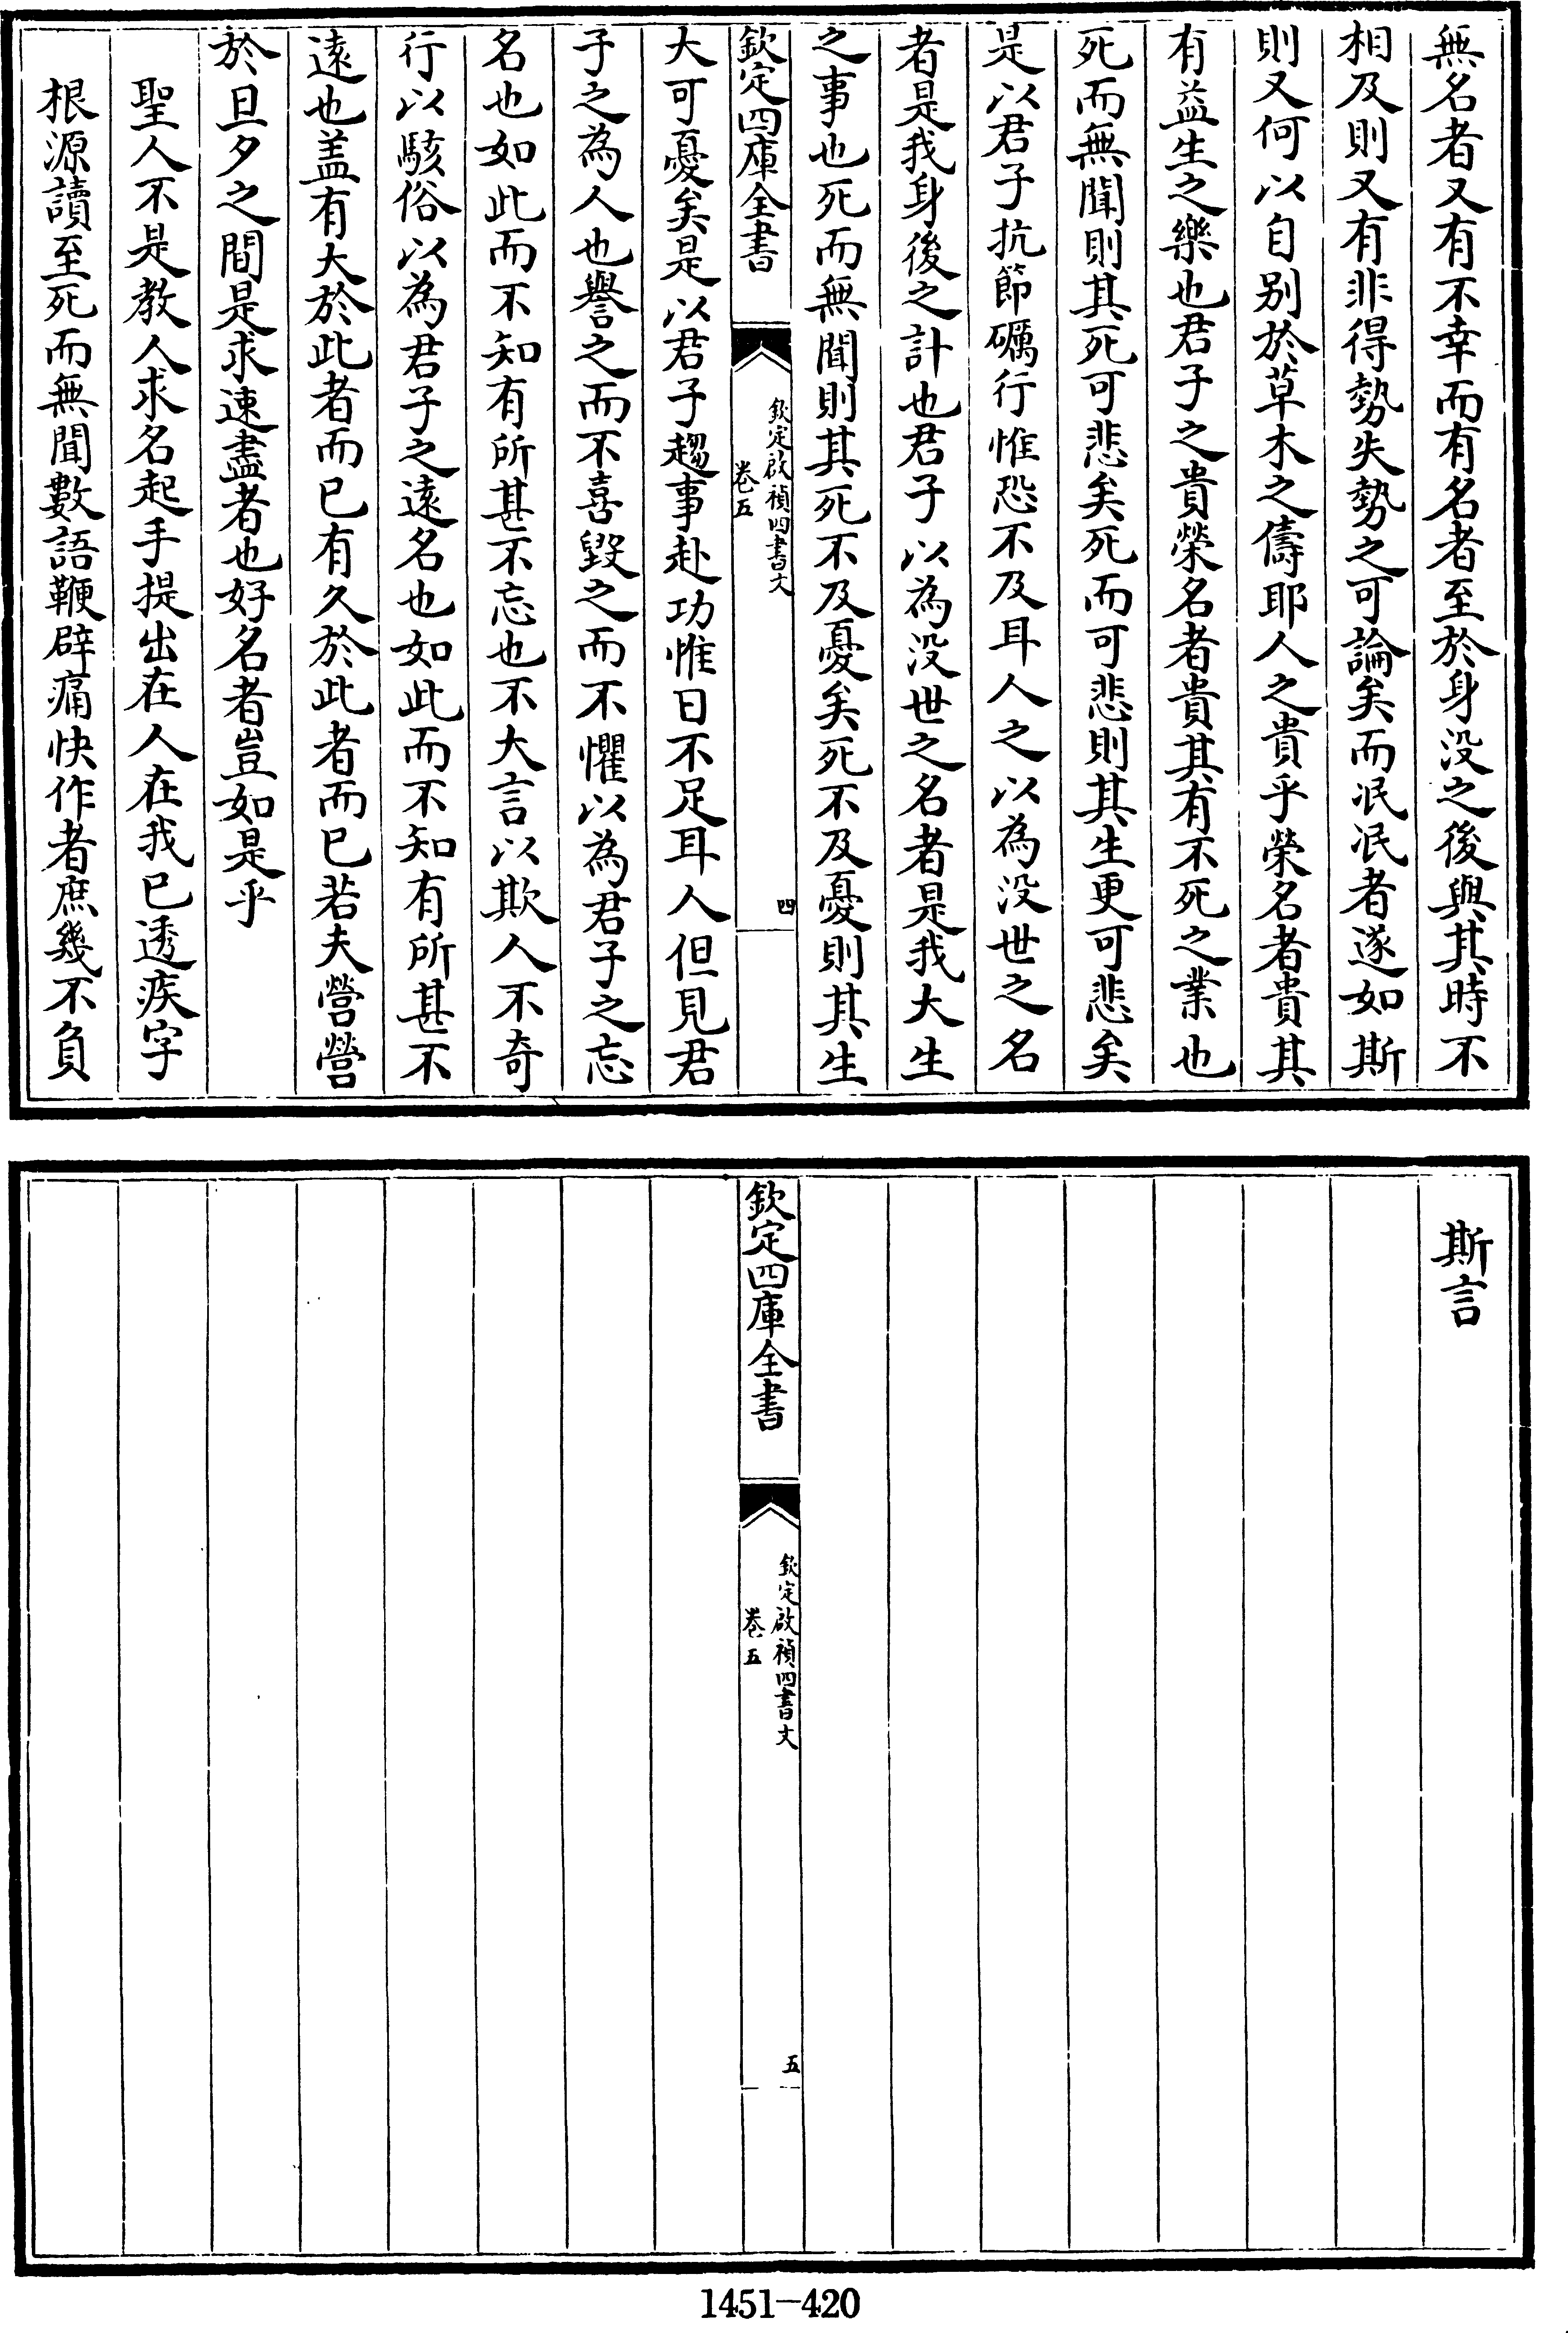 無名者又有不幸而有名者至於身没之後與其時不
相及則又有非得勢失勢之可論矣而泯泯者遂如斯
則又何以自别於草木之儔耶人之貴乎榮名者貴其
有益生之樂也君子之貴榮名者貴其有不死之業也
死而無聞則其死可悲矣死而可悲則其生更可悲矣
是以君子抗節礪行惟恐不及耳人之以為没世之名
者是我身後之計也君子以為没世之名者是我大生
之事也死而無聞則其死不及憂矣死不及憂則其生
欽定四庫全書
欽定啟禎四書文
卷五
四
大可憂矣是以君子趨事赴功惟日不足耳人但見君
子之為人也譽之而不喜毀之而不懼以為君子之忘
名也如此而不知有所甚不忘也不大言以欺人不奇
行以駭俗以為君子之遠名也如此而不知有所甚不
遠也盖有大於此者而已有久於此者而已若夫營營
於旦夕之間是求速盡者也好名者豈如是乎
聖人不是教人求名起手提出在人在我已透疾字
根源讀至死而無聞數語鞭辟痛快作者庶幾不負
斯言
欽定四庫全書
欽定啟禎四書文
卷五
五
1451-420